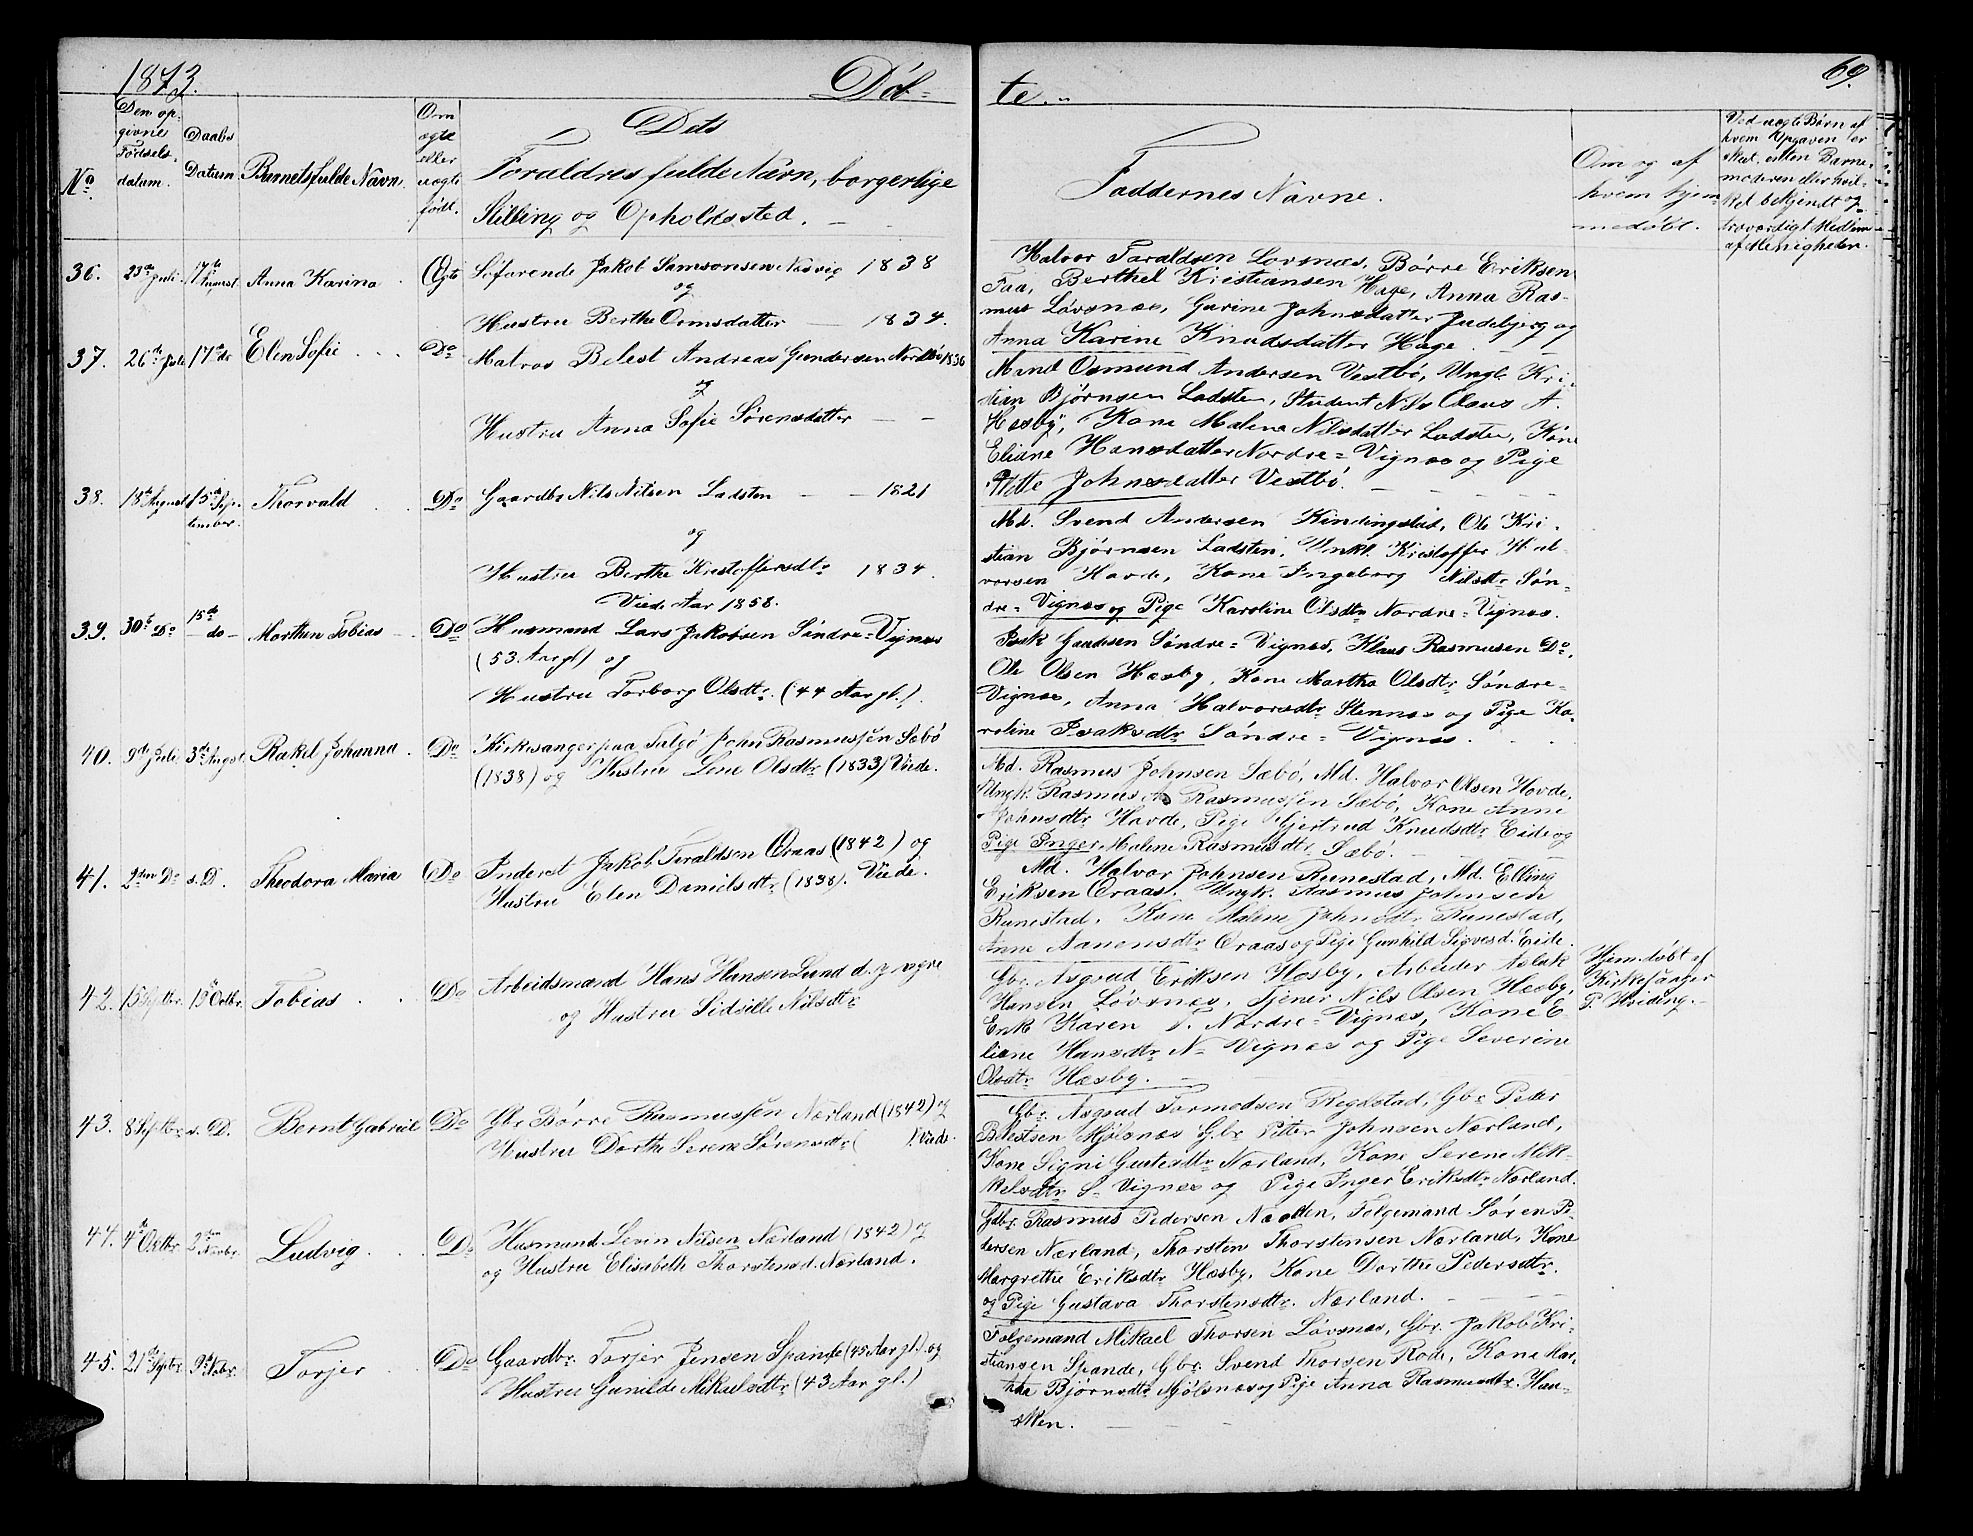 1873.
Døb=
te.
69.
No.
Den op-
givne
Fødsels-
datum.
Daabs
Datum
Barnets fulde Navn.
Om
ægte
eller
uægte
født.
Dets
Forældres fulde Navn, borgerlige
Stilling og Opholdssted.
Faddernes Navne.
Om og af
hvem hjem-
medøbt.
Ved uægte Børn af
hvem Opgaven er
sked, enten Barne-
moderen eller hvil-
ket bekjendt og
troværdigt Medlem
af Menigheden.
36. 23de Juli 17de August Anna Karina Ægte Søfarende Jakob Samsonsen Næsvig 1838
og
Hustru Berthe Ormsdatter 1834.
Halvor Taraldsen Løvsnæs, Børre Eriksen
Faa, Berthel Kristiansen Hage, Anna Ras-
mus Løvsnæs, Gurine Johnsdatter Judebjerg og
Anna Karine Knudsdatter Hage
37. 26de Juli 17de do Elen Sofie Do Matros Belest Andreas Gundersen Nordbø 1836
og
Hustru Anna Sofie Sørensdatter
Mand Osmund Andersen Vestbø, Ungk. Kri-
stian Bjørnsen Ladsten, Student Nils Claus A.
Hæsby, Kone Malena Nilsdatter Ladsten, Kone
Eliane Hansdatter Nordre=Vignæs og Pige
Johnsdatter Vestbø.
38. 18de August 15de Sep-
tember. Thorvald Do Gaardbr Nils Nilsen Ladsten 1821
og
Hustru Berthe Kristoffersdtr 1834.
Viede Aar 1858.
Md. Svend Andersen Kindingstad, Ole Kri-
stian Bjørnsen Ladsten, Unkl. Kristoffer Hal-
vorsen Hovde, Kone Ingeborg Nilsdtr Søn-
dre=Vignæs og Pige Karoline Olsdtr Nordre=Vignæs.
39. 30te Do 15de
do Morthen Tobias Do Husmand Lars Jakobsen Søndre=Vignæs
(53 Aar gl) og
Hustru Torborg Olsdtr. (44 Aar gl.).
Isak Gautesen Søndre=Vignæs, Klaus Rasmusen Do,
Ole Olsen Hæsby, Kone Martha Olsdtr Søndre=
Vignæs, Anna Halvorsdtr Stennæs og Pige Ka-
roline Isaksdtr Søndre=Vignæs.
40. 9de Juli 3die August Rakel Johanna Do Kirkesanger paa Talgø John Rasmussen Sæbø
(1838) og Hustru Lene Olsdtr (1833) Viede.
Md. Rasmus Johnsen Sæbø, Md. Halvor Olsen Hovde,
Ungk. Rasmus Rasmussen Sæbø, Kone Anne
Johnsdtr Hovde, Pige Gjertrud Knudsdtr Eide og
Pige Inger Malene Rasmusdtr Sæbø.
41. 2den Do s. D. Theodora Maria Do Inderst Jakob Taraldsen Øraas (1842) og
Hustru Elen Danielsdtr (1838). Viede.
Md. Halvor Johnsen Runestad, Md. Elling
Eriksen Øraas. Ungk. Rasmus Johnsen
Runestad, Kone Malene Johnsdtr Runestad,
Anne Aanensdtr Øraas og Pige Gunhild Sigvesd. Eide.
42. 15 Septbr. 15de Octbr. Tobias Do Arbeidsmand Hans Hansen Lund d. yngre
og Hustru Sidsille Nilsdtr
Gbr. Asgaud Eriksen Hæsby, Arbeider Aslak
Hansen Løvsnæs, Tjener Nils Olsen Hæsby,
Enke Karen T. Nordre=Vignæs, Kone E-
liane Hansdtr N= Vignæs og Pige Severine
Olsdtr Hæsby.
Hjemdøbt af
Kirkesanger
P. Hviding.
43. 8 Septbr s. D. Bernt Gabriel Do Gbr Børre Rasmussen Nærland (1842) og
Hustru Dorthe Serene Sørensdtr ( ). Viede.
Gbr. Asgaud Tormodsen Regestad, Gbr Peter
Belestsen Mjølsnæs Gbr Peter Johnsen Nærland,
Kone Signi Gautesdtr Nærland, Kone Serene Mik-
kelsdtr S= Vignæs og Pige Inger Eriksdtr Nærland.
44. 4de Octbr 2den Novbr. Ludvig. Do Husmand Levin Nilsen Nærland (1842)
og Hustru Elisabeth Thorstensd. Nærland.
Gdbr. Rasmus Pedersen Nordten, Følgemand Søren P-
dersen Nærland, Thorsten Thorstensen Nærland, Kone
Margrethe Eriksdtr Hæsby, Kone Dorthe Pedersdtr.
og Pige Gustava Thorstensdtr. Nærland.
45. 21de Septbr 9de Novbr. Torjer Do Gaardbr. Torjer Jensen Spande (45 Aar gl.) og
Hustru Gunilde Mikaelsdtr (43 Aar gl.)
Følgemand Mikael Thorsen Løvsnæs, Gbr. Jakob Kri-
stiansen Spande, Gbr. Svend Thorsen Rode, Kone Mar-
tha Bjørnsdtr Mjølsnæs og Pige Anna Rasmusdtr. Hau-
sken.